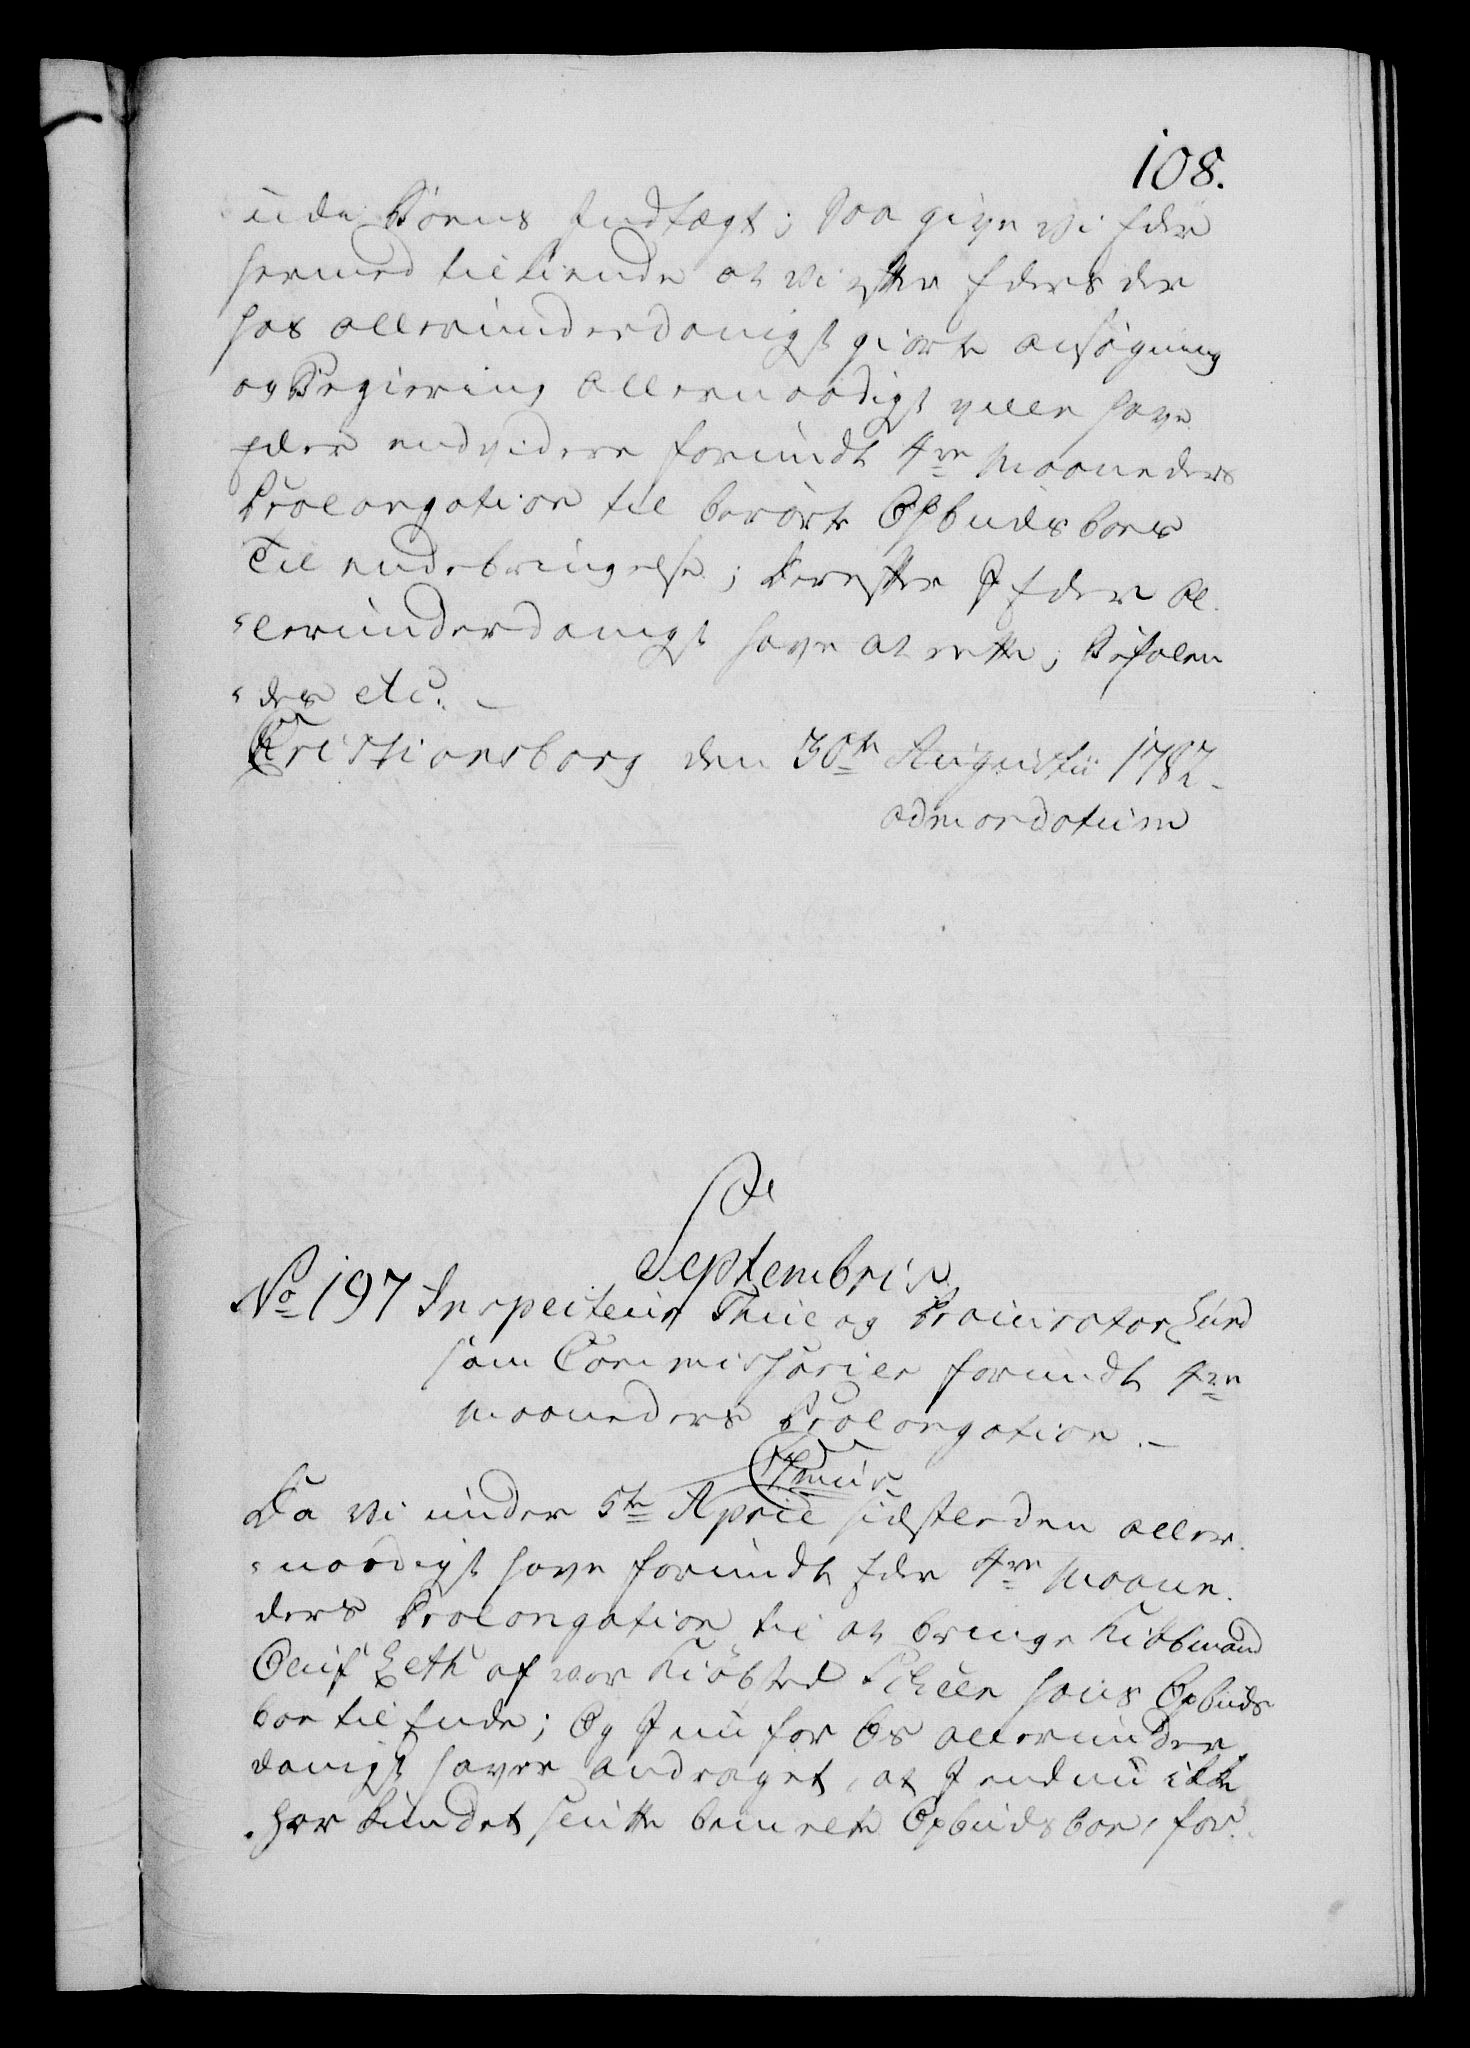 108.
ude Boens Indtægt; saa give vi Eder
hermed tilkiende at vi efter Eders der
hos allerunderdanigst giorte ansøgning
og Begiering allernaadigst ville have
Eder endvidere forundt 4re Maaneders
Prolongation til berørte Opbuds boes
Til endebringelse; Derefter I Eder al
lerunderdanigst have at rette; Befalen
des etc.
Christiansborg den 30te Augustii 1782
admandatum
Septembris
No 197 Inspecteur Thue og Procurator Lund
som Commissarier forundt 4re
maaneders Prolongation.
Da vi under 5te April sidstleden aller
naadigst have forundt Eder 4re Maane
ders Prolongation til at bringe Kiøbmand
Oluf Leth af vor Kiøbsted Scheen hans Opbuds
boe til Ende; Og I nu for Os allerunder
danigst haver andraget, at I endnu ikke
har kundet slutte bemelte Opbudsboe, for